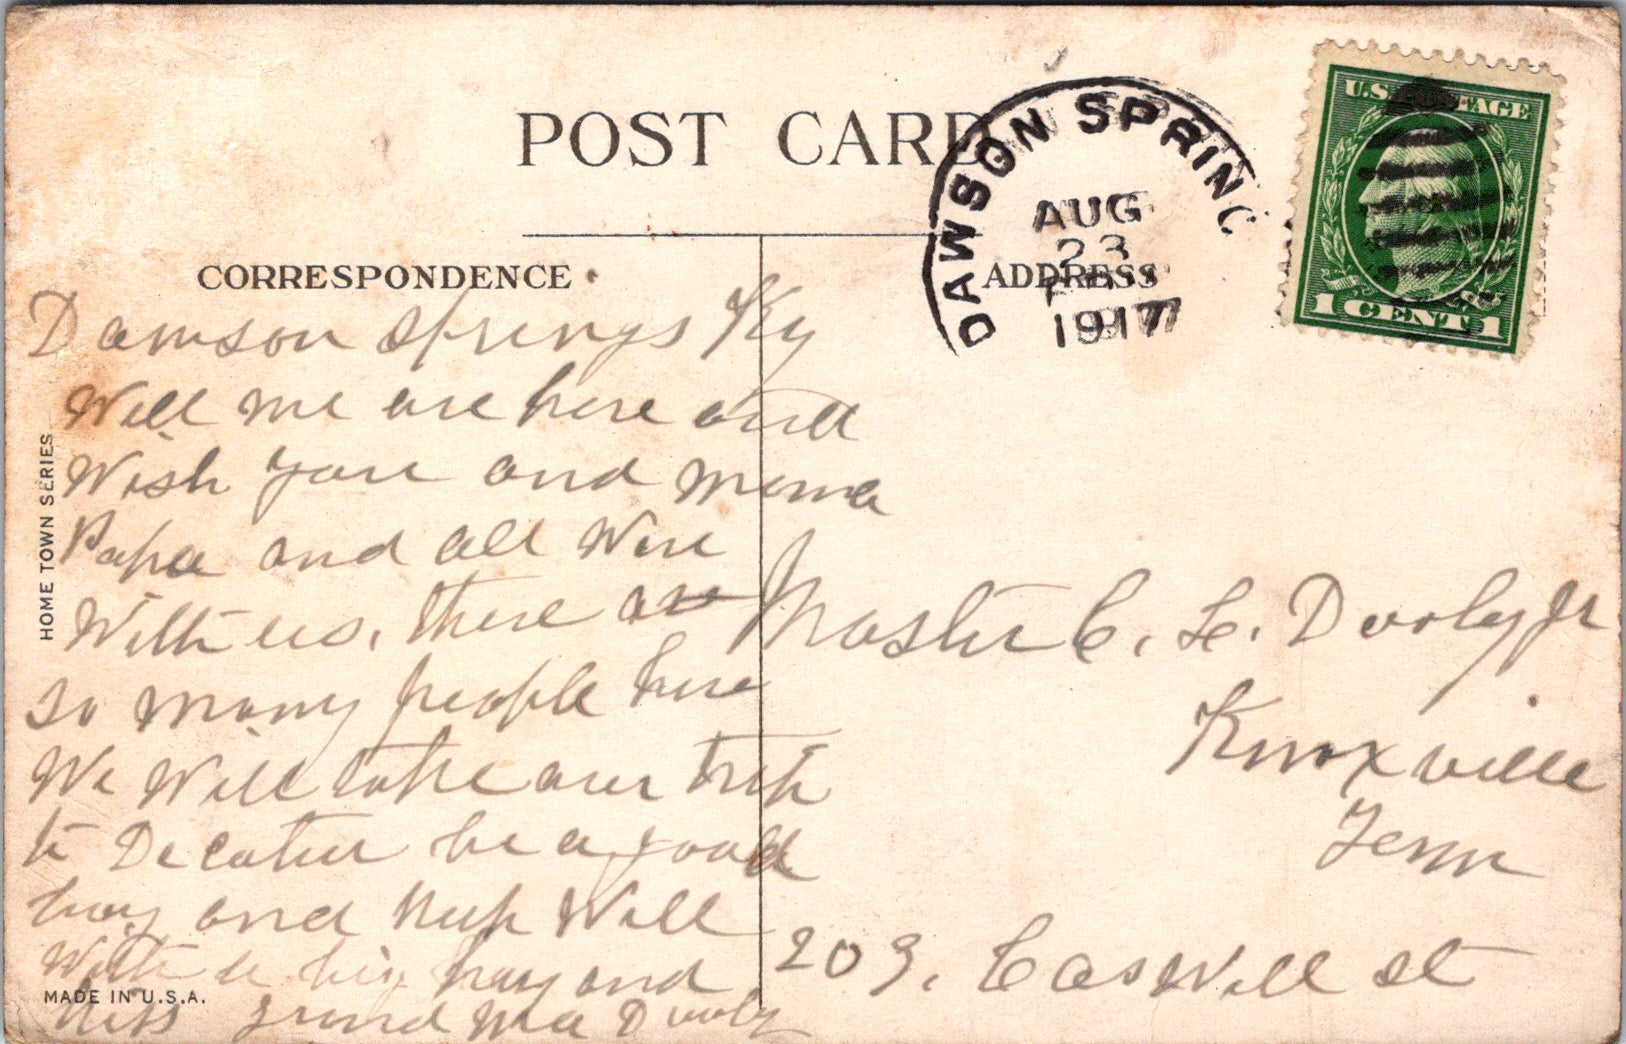 POST CARD
DAWSON SPRING
AUG
23
1917
U.S. POSTAGE
1 CENT 1
CORRESPONDENCE
ADDRESS
HOME TOWN SERIES
Dawson Springs Ky
Well we are here and
Wish you and mama
Papa and all were
With us, there are
so many people here
We Will take our trip
to Decatur be a good
boy and keep Well
be big boy and
Kiss grand Ma
Master C. L. Jr
Knoxville
Tenn
203. Caswell st
MADE IN U.S.A.